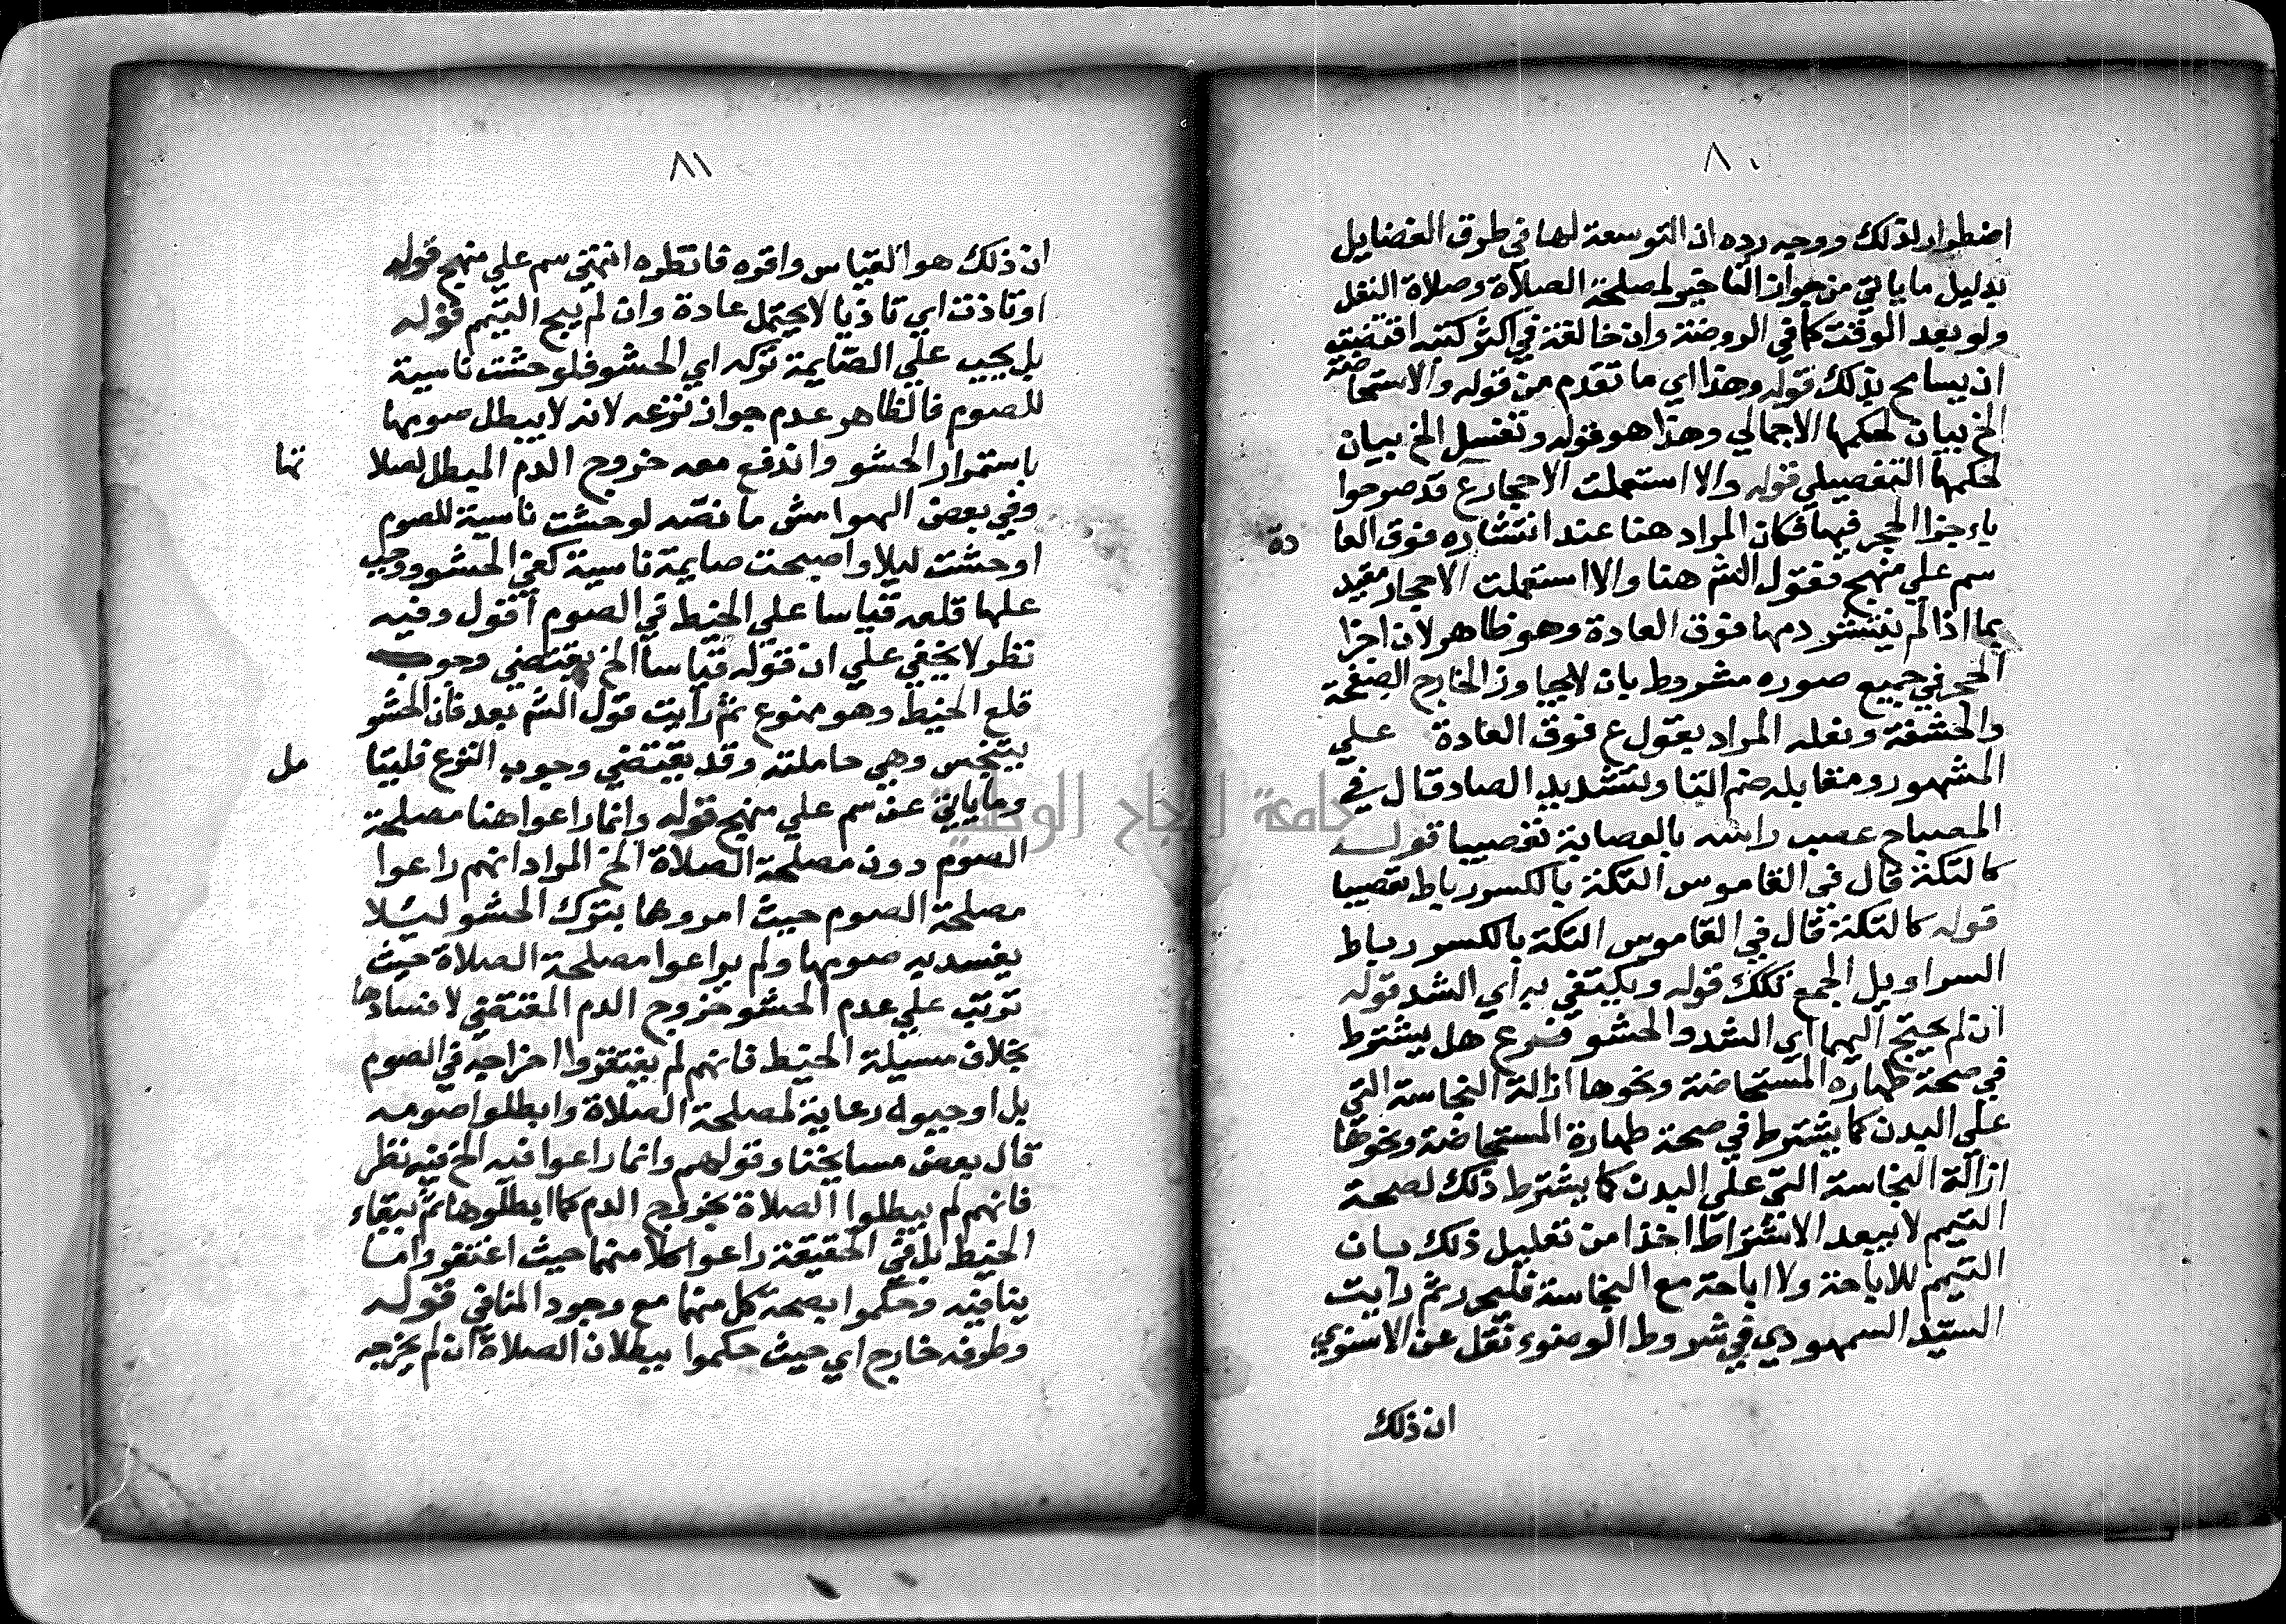 ٨٠
اضطرار لذلك ووجه رده ان التوسعة لها في طرق الفضايل
بدليل ما ياتي من جواز التاخير لمصلحة الصلاة وصلاة النفل
ولو بعد الوقت كما في الروضة وان خالفته في اكثر كتبه اقتضت
ان يسامح بذلك قوله وهذا اي ما تقدم من قوله والاستحاضة
الخ بيان لحكمها الاجمالي وهذا هو قوله وتغسل الخ بيان
لحكمها التفصيلي قوله والا استعملت الاحجار ع قد صرحوا
باجزا الحجر فيها فكان المراد هنا عند انتشاره فوق العادة
سم علي منهج فقول الشم هنا والا استعملت الاحجار مقيد
بما اذا لم ينتشر دمها فوق العادة وهو ظاهر لان اجزا
الحجر في جميع صوره مشروط بان لا يجاوز الخارج الصفحة
والحشفة ولعله المراد بقول ع فوق العادة علي
المشهور ومقابله ضم التا وتشديد الصاد قال في
المصباح عصب راسه بالعصابة تعصيبا قوله
كالتكة قال في القاموس التكة بالكسر رباط تعصيبا
قوله كالتكة قال في القاموس التكة بالكسر رباط
السراويل الجمع تكك قوله ويكتفي به اي الشد قوله
ان لم يحتج اليهما اي الشد والحشو فرع هل يشترط
في صحة طهاره المستحاضة ونحوها ازالة النجاسة التي
علي البدن كما يشترط في صحة طهارة المستحاضة ونحوها
ازالة النجاسة التي علي البدن كما يشترط ذلك لصحة
التيمم لا يبعد الاشتراط اخذا من تعليل ذلك بان
التيمم للاباحة ولا اباحة مع النجاسة فليحرر ثم رايت
السيد السمهودي في شروط الوضوء نقل عن الاسنوي
ان ذلك
٨١
ان ذلك هو القياس واقره فانظره انتهي سم علي منهج قوله
او تاذت اي تاذيا لا يحتمل عادة وان لم يبح التيمم قوله
بل يجب علي الصايمة تركه اي الحشو فلو حشت ناسية
للصوم فالظاهر عدم جواز نزعه لانه لا يبطل صومها
باستمرار الحشو واندفع معه خروج الدم المبطل لصلاتها
وفي بعض الهوامش ما نصه لو حشت ناسية للصوم
او حشت ليلا واصبحت صايمة ناسية كفي الحشو ووجب
عليها قلعه قياسا علي الخيط في الصوم اقول وفيه
نظر لا يخفي علي ان قوله قياسا الخ يقتضي وجوب
قلع الخيط وهو ممنوع ثم رايت قول الشم بعد فان الحشو
يتنجس وهي حاملته وقد يقتضي وجوب النزع فليتامل
وما ياتي عن سم علي منهج قوله وانما راعوا هنا مصلحة
الصوم دون مصلحة الصلاة الخ المراد انهم راعوا
مصلحة الصوم حيث امروها بترك الحشو ليلا
يفسد به صومها ولم يراعوا مصلحة الصلاة حيث
ترتب علي عدم الحشو خروج الدم المقتضي لافسادها
بخلاف مسيلة الخيط فانهم لم يغتفروا اخراجه في الصوم
بل اوجبوه رعاية لمصلحة الصلاة وابطلوا صومه
قال بعض مسايخنا وقولهم وانما راعوا فيه الخ فيه نظر
فانهم لم يبطلوا الصلاة بخروج الدم كما ابطلوها ثم ببقاء
الخيط بل في الحقيقة راعوا كلا منهما حيث اغتفروا ما
ينافيه وحكموا بصحة كل منهما مع وجود المنافي قوله
وطرفه خارج اي حيث حكموا ببطلان الصلاة ان لم يخرجه
جامعة النجاح الوطنية